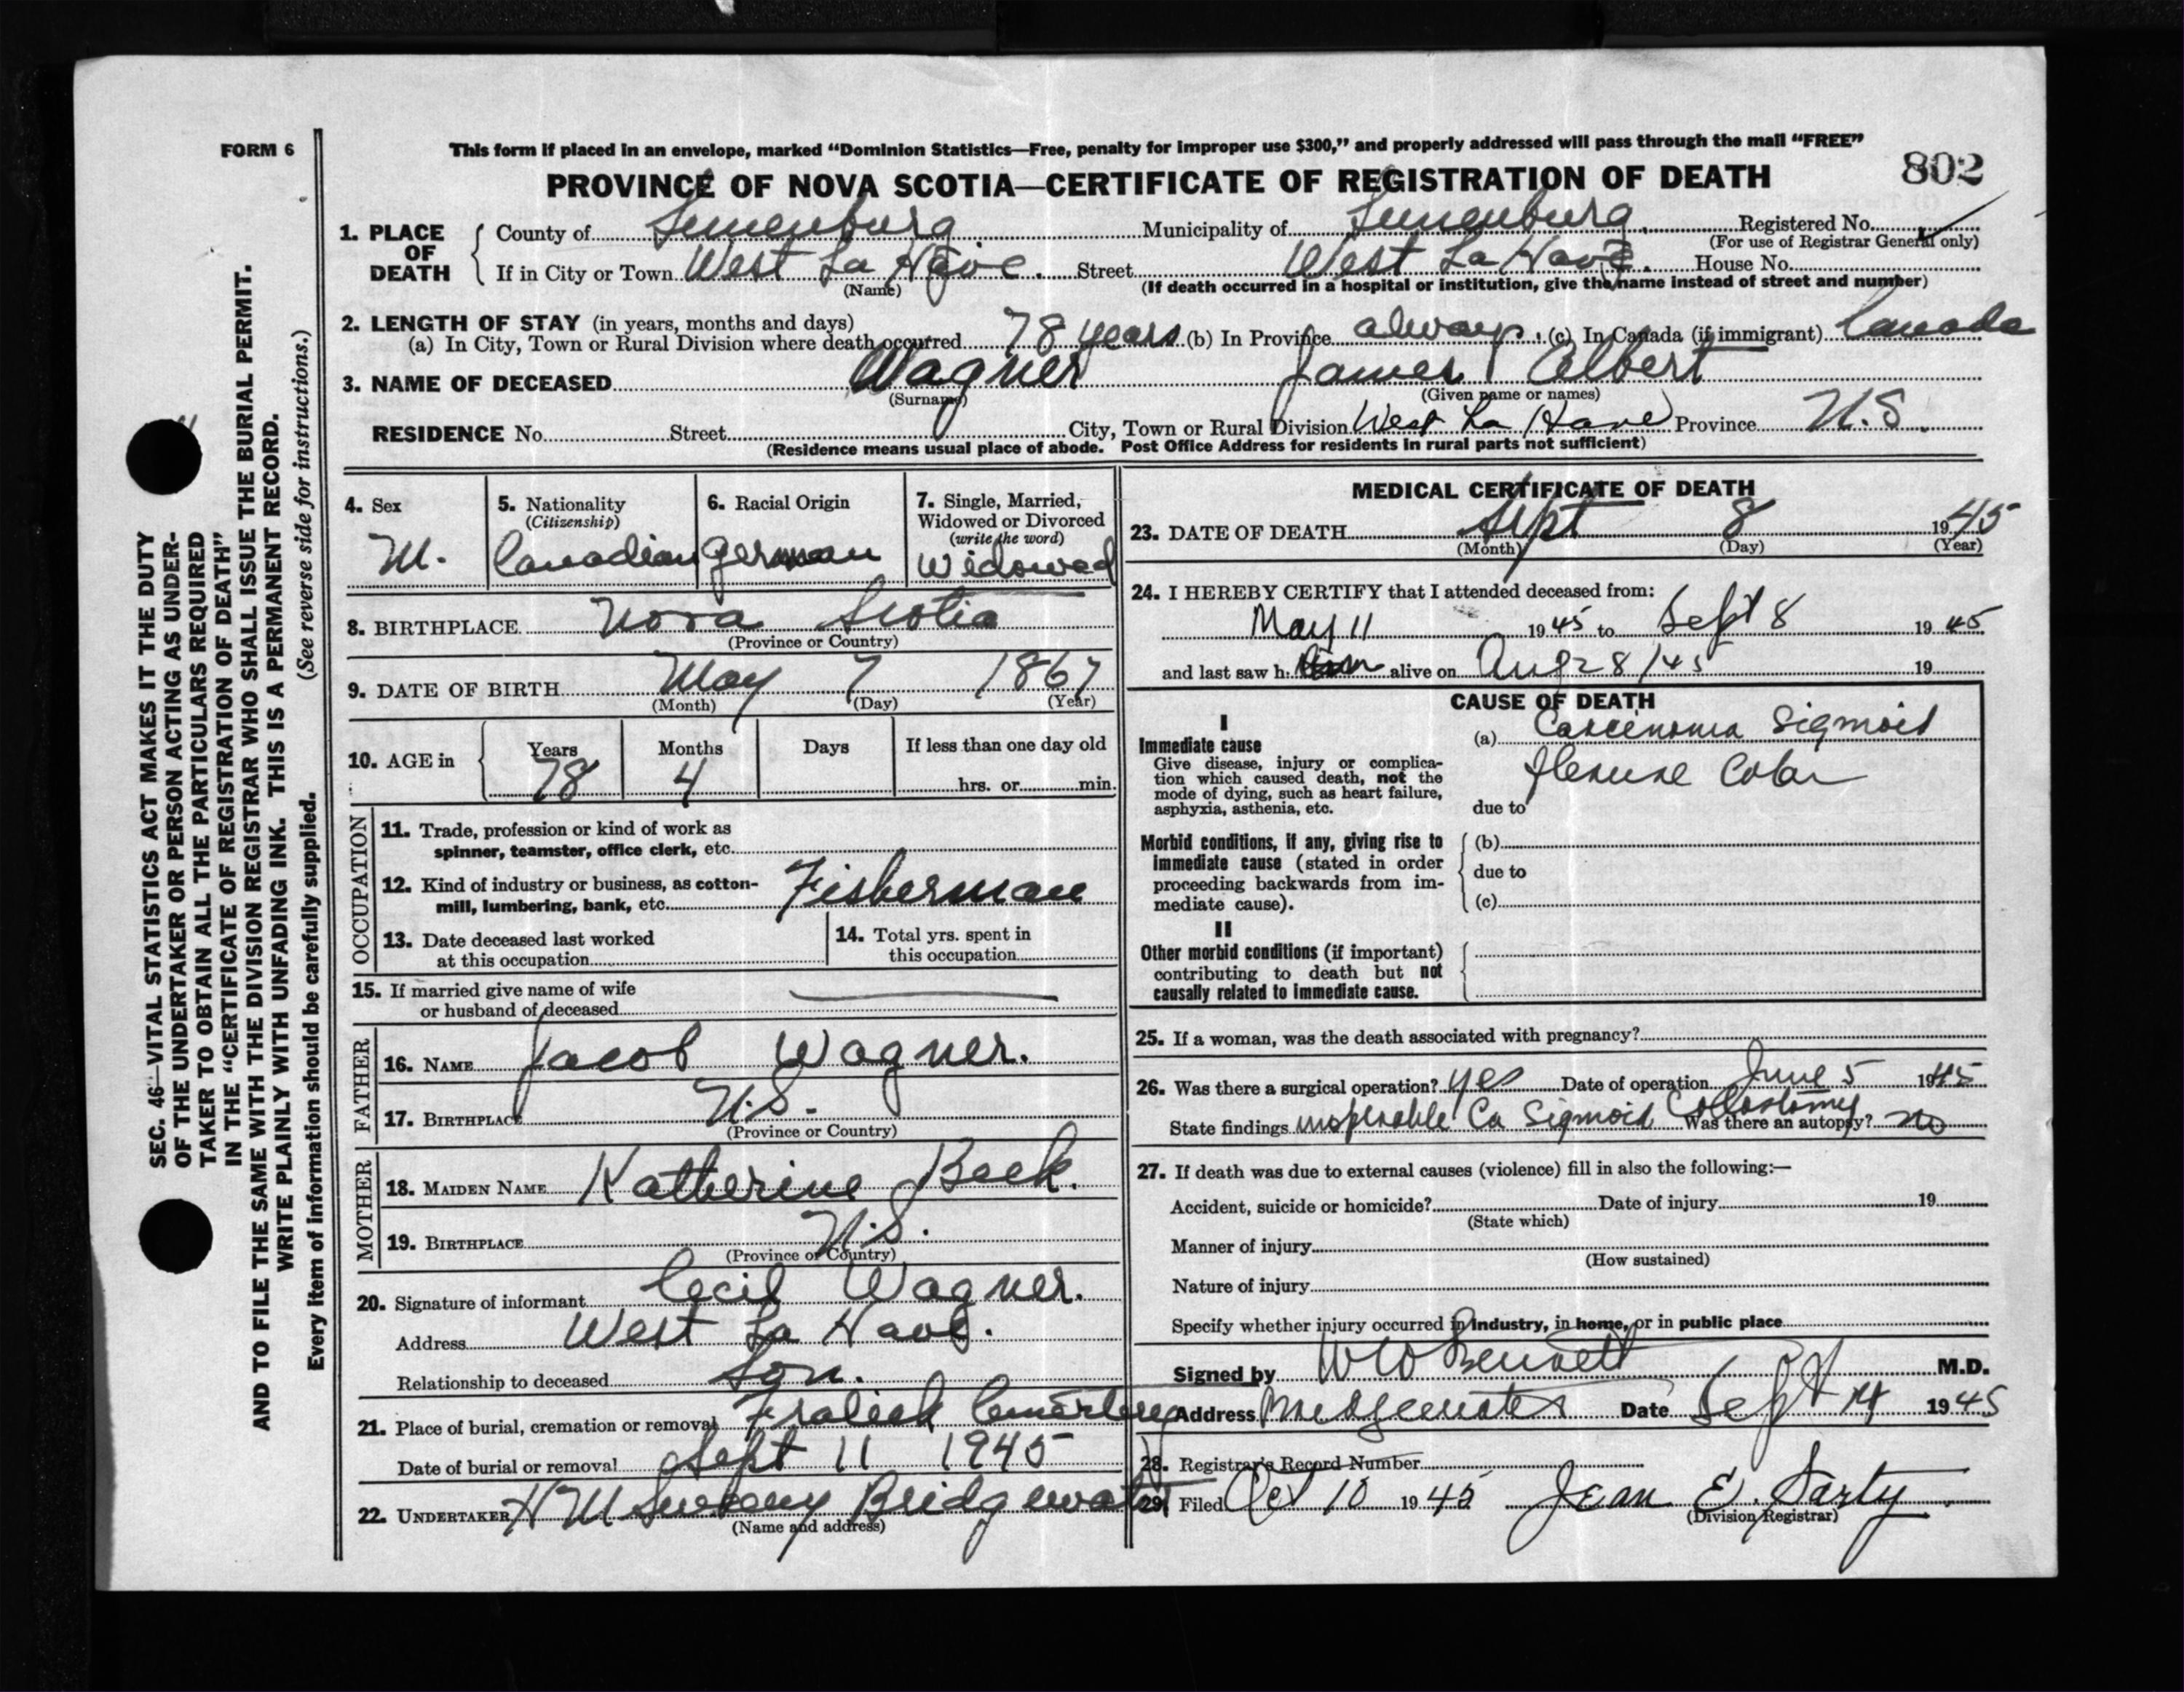 FORM 6
This form if placed in an envelope, marked “Dominion Statistics—Free, penalty for improper use $300,” and properly addressed will pass through the mail “FREE”
PROVINCE OF NOVA SCOTIA—CERTIFICATE OF REGISTRATION OF DEATH
802
1. PLACE OF DEATH
County of Lunenburg Municipality of Lunenburg Registered No.
(For use of Registrar General only)
If in City or Town West La Have. Street West La Have. House No.
(Name) (If death occurred in a hospital or institution, give the name instead of street and number)
2. LENGTH OF STAY (in years, months and days)
(a) In City, Town or Rural Division where death occurred 78 years (b) In Province always. (c) In Canada (if immigrant) Canada
3. NAME OF DECEASED Wagner James Albert
(Surname) (Given name or names)
RESIDENCE No. Street City, Town or Rural Division West La Have Province N.S.
(Residence means usual place of abode. Post Office Address for residents in rural parts not sufficient)
4. Sex M.
5. Nationality (Citizenship) Canadian
6. Racial Origin German
7. Single, Married, Widowed or Divorced (write the word) Widowed
8. BIRTHPLACE Nova Scotia
(Province or Country)
9. DATE OF BIRTH May 7 1867
(Month) (Day) (Year)
10. AGE in Years 78 Months 4 Days If less than one day old
hrs. or min.
OCCUPATION
11. Trade, profession or kind of work as
spinner, teamster, office clerk, etc.
12. Kind of industry or business, as cotton-
mill, lumbering, bank, etc. Fisherman
13. Date deceased last worked
at this occupation
14. Total yrs. spent in
this occupation
15. If married give name of wife
or husband of deceased
FATHER
16. NAME Jacob Wagner.
17. BIRTHPLACE N.S.
(Province or Country)
MOTHER
18. MAIDEN NAME Katherine Beck.
19. BIRTHPLACE N.S.
(Province or Country)
20. Signature of informant Cecil Wagner.
Address West La Have.
Relationship to deceased Son.
21. Place of burial, cremation or removal Fralick Cemetery
Date of burial or removal Sept 11 1945
22. UNDERTAKER H M Sweeny Bridgewater
(Name and address)
MEDICAL CERTIFICATE OF DEATH
23. DATE OF DEATH Sept 8 1945
(Month) (Day) (Year)
24. I HEREBY CERTIFY that I attended deceased from:
May 11 1945 to Sept 8 1945
and last saw h. him alive on Aug 28/45 19
CAUSE OF DEATH
I
Immediate cause
Give disease, injury or complica-
tion which caused death, not the
mode of dying, such as heart failure,
asphyxia, asthenia, etc.
(a) Carcinoma Sigmoid
flexure Colon
due to
Morbid conditions, if any, giving rise to
immediate cause (stated in order
proceeding backwards from im-
mediate cause).
(b)
due to
(c)
II
Other morbid conditions (if important)
contributing to death but not
causally related to immediate cause.
25. If a woman, was the death associated with pregnancy?
26. Was there a surgical operation? yes Date of operation June 5 1945
State findings inoperable Ca Sigmoid Collostomy Was there an autopsy? no
27. If death was due to external causes (violence) fill in also the following:—
Accident, suicide or homicide? Date of injury 19
(State which)
Manner of injury
(How sustained)
Nature of injury
Specify whether injury occurred in industry, in home, or in public place
Signed by W W Bennett M.D.
Address Bridgewater Date Sept 14 1945
28. Registrar's Record Number
29. Filed Oct 10 1945 Jean E. Sarty
(Division Registrar)
SEC. 46—VITAL STATISTICS ACT MAKES IT THE DUTY
OF THE UNDERTAKER OR PERSON ACTING AS UNDER-
TAKER TO OBTAIN ALL THE PARTICULARS REQUIRED
IN THE “CERTIFICATE OF REGISTRATION OF DEATH”
AND TO FILE THE SAME WITH THE DIVISION REGISTRAR WHO SHALL ISSUE THE BURIAL PERMIT.
WRITE PLAINLY WITH UNFADING INK. THIS IS A PERMANENT RECORD.
Every item of information should be carefully supplied. (See reverse side for instructions.)